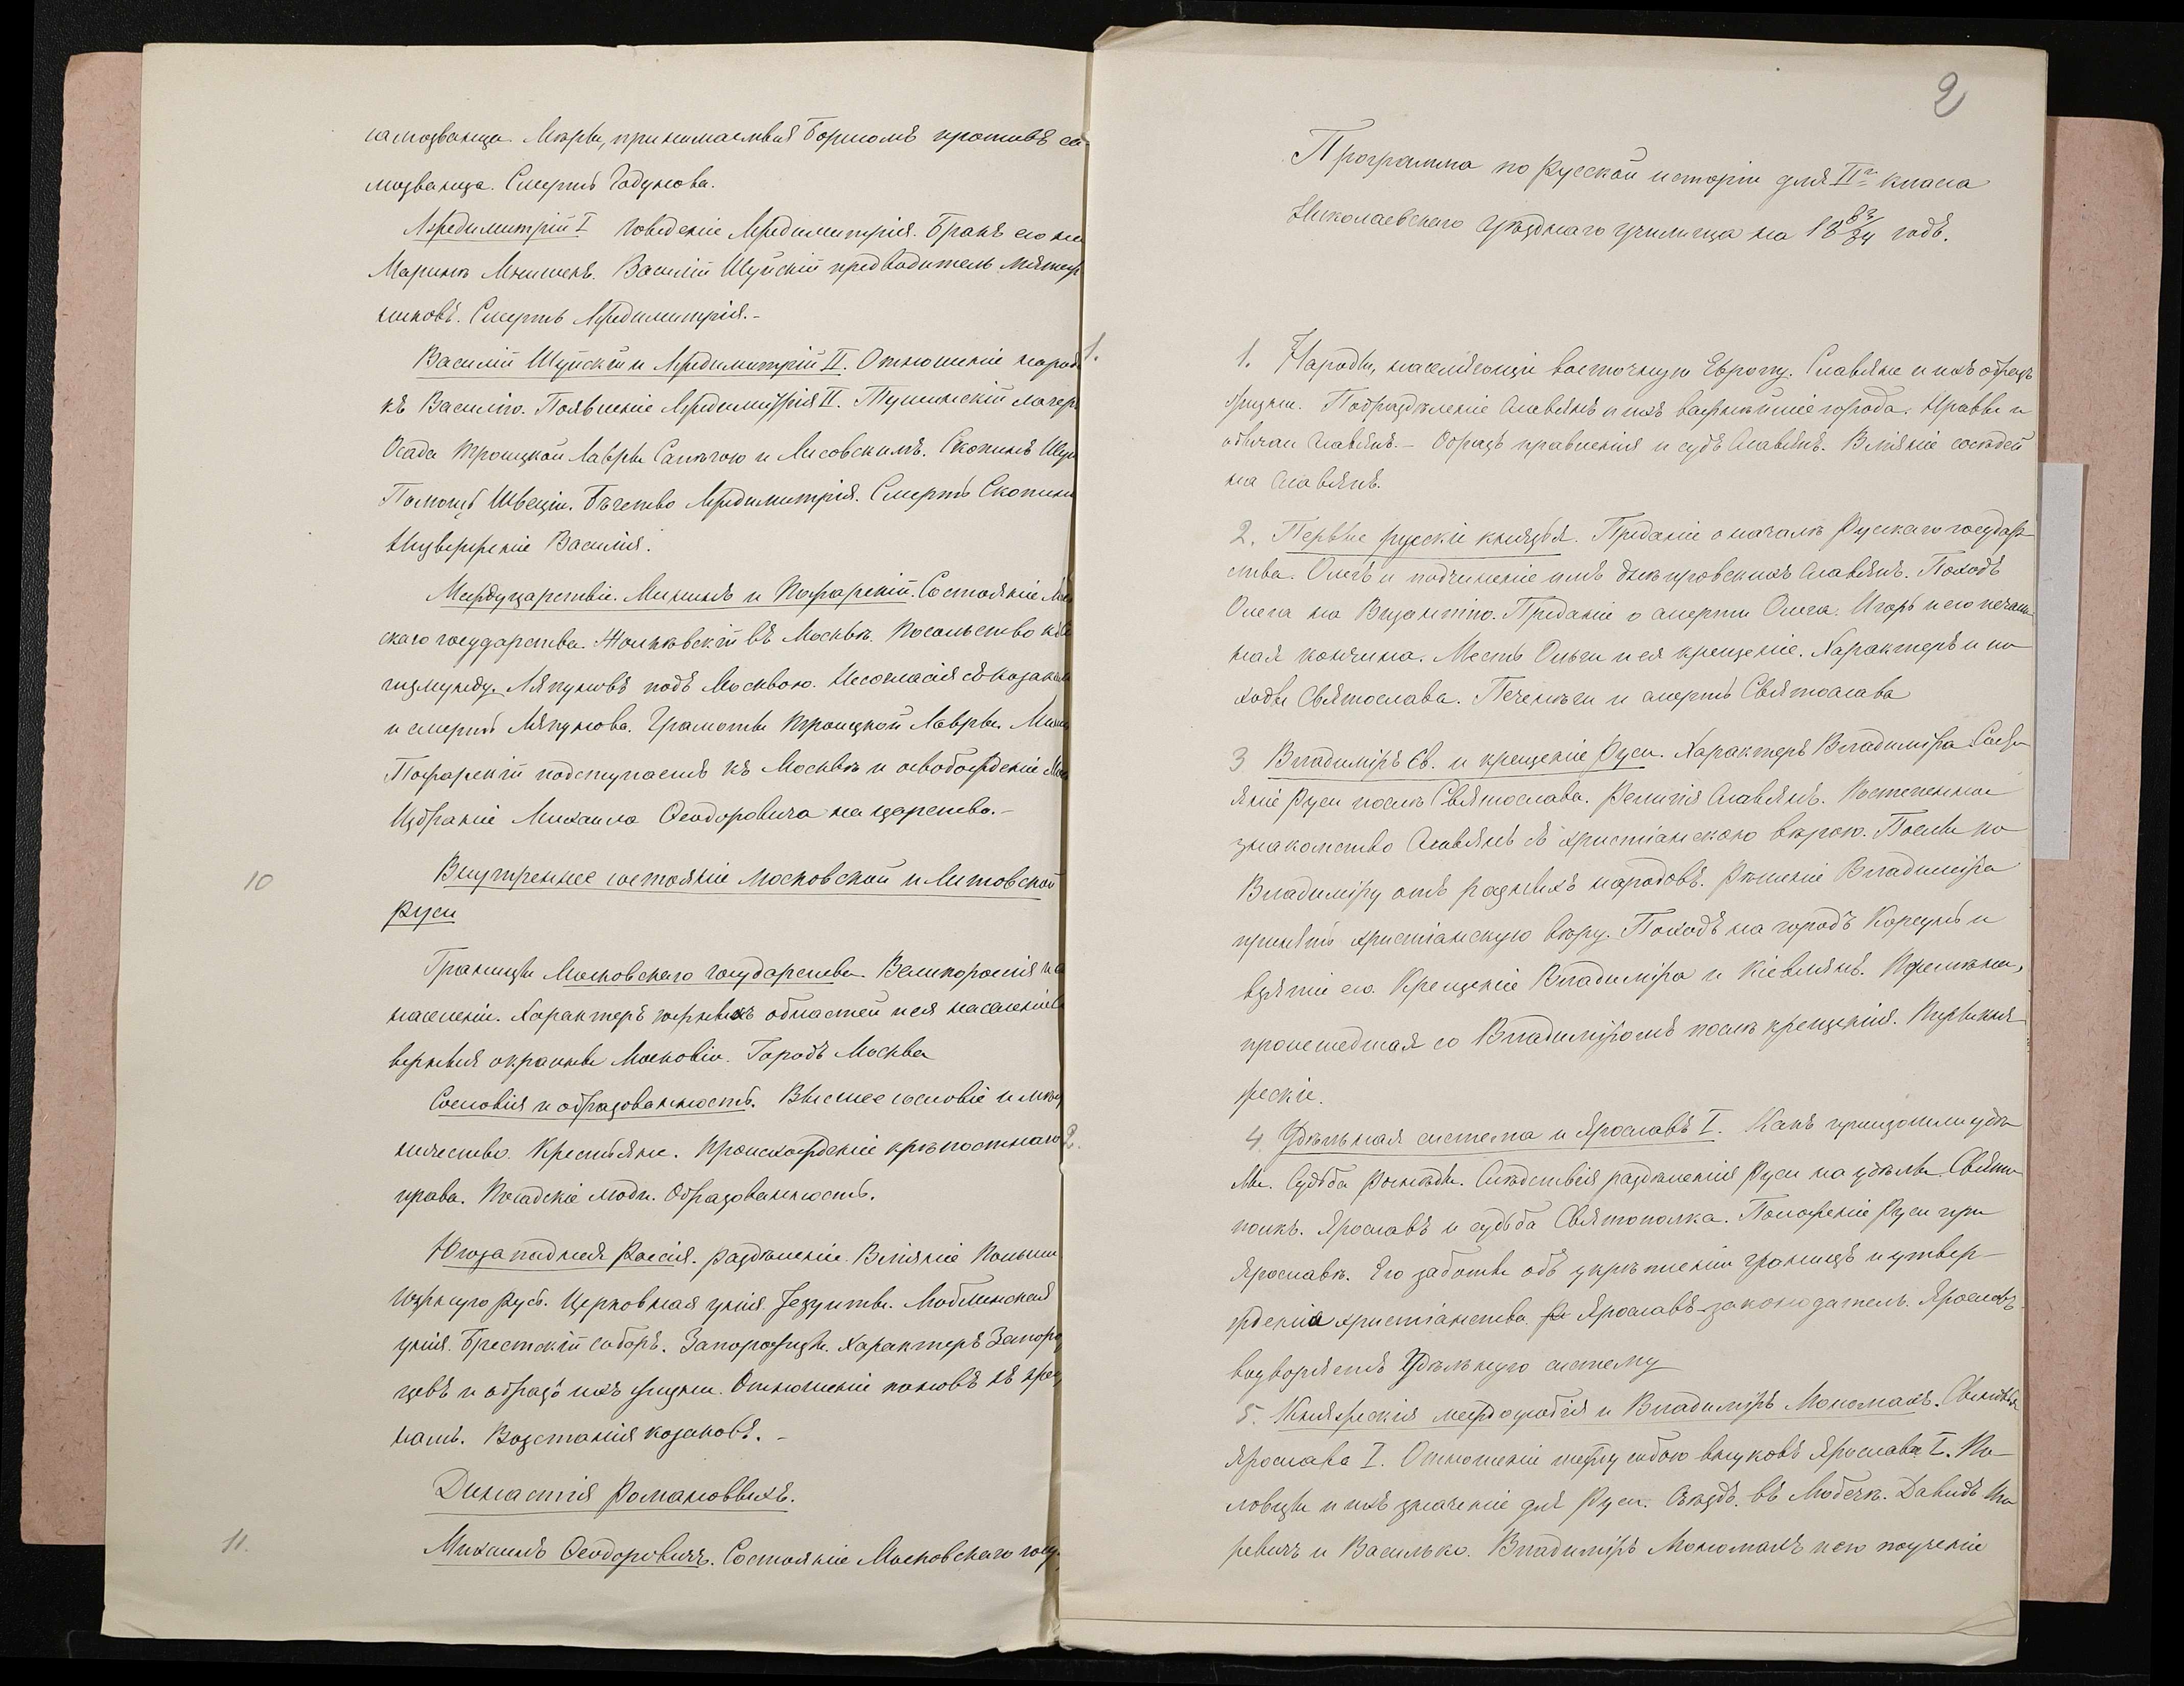 самозванца. Мѣры, принимаемыя Борисомъ противъ са-
мозванца. Смерть Годунова.
Лжедимитрій I Поведеніе Лжедимитрія. Бракъ его на
Маринѣ Мнишекъ. Василій Шуйскій предводитель мятеж
никовъ. Смерть Лжедимитрія.-
Василій Шуйскій и Лжедимитрій II. Отношеніе народ
къ Василію. Появленіе Лжедимитрія II. Тушинскій лагерь
Осада Троицкой Лавры Сапѣгою и Лисовскимъ. Скопинъ Шуй
Помощь Швеціи. Бѣгство Лжедимитрія. Смерть Скопина
Низверженіе Василія.
Междуцарствіе. Мининъ и Пожарскій. Состояніе Мос
скаго государства. Жолкѣвскій въ Москвѣ. Посольство къ Си
гизмунду. Ляпуновъ подъ Москвою. Несогласія съ козакам
и смерть Ляпунова. Грамоты Троицкой Лавры. Мини
Пожарскій подступаетъ къ Москвѣ и освобожденіе Мос
Избраніе Михаила Ѳеодоровича на царство.-
10
Внутреннее состояніе Московской и Литовской
Руси
Границы Московскаго государства. Великороссія и ея
населеніи. Характеръ южныхъ областей и ея населенія
верныя окраины Московіи. Городъ Москва
Сословія и образованность. Высшее сословіе и мѣст
ничество. Крестьяне. Происхожденіе крѣпостнаго
права. Посадскіе люди. Образованность.
Югозападная Россія. Раздѣленіе. Вліяніе Польши
Южную Русь. Церковная унія. Іезуиты. Люблинская
унія. Брестскій соборъ. Запорожцы. Характеръ Запорож
цевъ и образъ ихъ жизни. Отношеніе пановъ къ крес
намъ. Возстанія козаковъ.-
Династія Романовыхъ.
11.
Михаилъ Ѳеодоровичъ. Состояніе Московскаго госу.
2
Программа по Русской исторіи для IIго класса
Николаевскаго уѣзднаго училища на 1883/84 годъ.
1.
1. Народы, населяющіе восточную Европу. Славяне и ихъ образъ
жизни. Подраздѣленіе Славянъ и ихъ важнѣйшіе города. Нравы и
обычаи Славянъ.- Образъ правленія и судъ Славянъ. Вліяніе сосѣдей
на Славянъ.
2. Первые русскіе князья. Преданіе о началѣ Русскаго государ-
ства. Олегъ и подчиненіе имъ днѣпровскихъ Славянъ. Походъ
Олега на Византію. Преданіе о смерти Олега. Игорь и его печаль
ная кончина. Месть Ольги и ея крещеніе. Характеръ и по
ходы Святослава. Печенѣги и смерть Святослава
3 Владиміръ Св. и крещеніе Руси. Характеръ Владиміра. Состо
яніе Руси послѣ Святослава. Религія Славянъ. Постепенное
знакомство Славянъ съ христіанскою вѣрою. Послы ко
Владиміру отъ разныхъ народовъ. Рѣшеніе Владиміра
принять христіанскую вѣру. Походъ на городъ Корсунь и
взятіе его. Крещеніе Владиміра и Кіевлянъ. Перемѣна,
происшедшая со Владиміромъ послѣ крещенія. Первыя кня
жескіе.
2.
4 Удѣльная система и Ярославъ I. Какъ произошли удѣ
лы. Судьба Рогнѣды. Слѣдствія раздѣленія Руси на удѣлы. Свято
полкъ. Ярославъ и судьба Святополка. Положеніе Руси при
Ярославѣ. Его заботы объ укрѣпленіи границъ и утвер-
жденіи христіанства. Ярославъ-законодатель. Ярославъ
водворяетъ Удѣльную систему
5. Княжескія междоусобія и Владиміръ Мономахъ. Сыновья
Ярослава I. Отношеніе между собою внуковъ Ярослава I. По-
ловцы и ихъ значеніе для Руси. Съѣздъ. въ Любечѣ. Давидъ Иго
ревичъ и Василько. Владиміръ Мономахъ и его поученіе